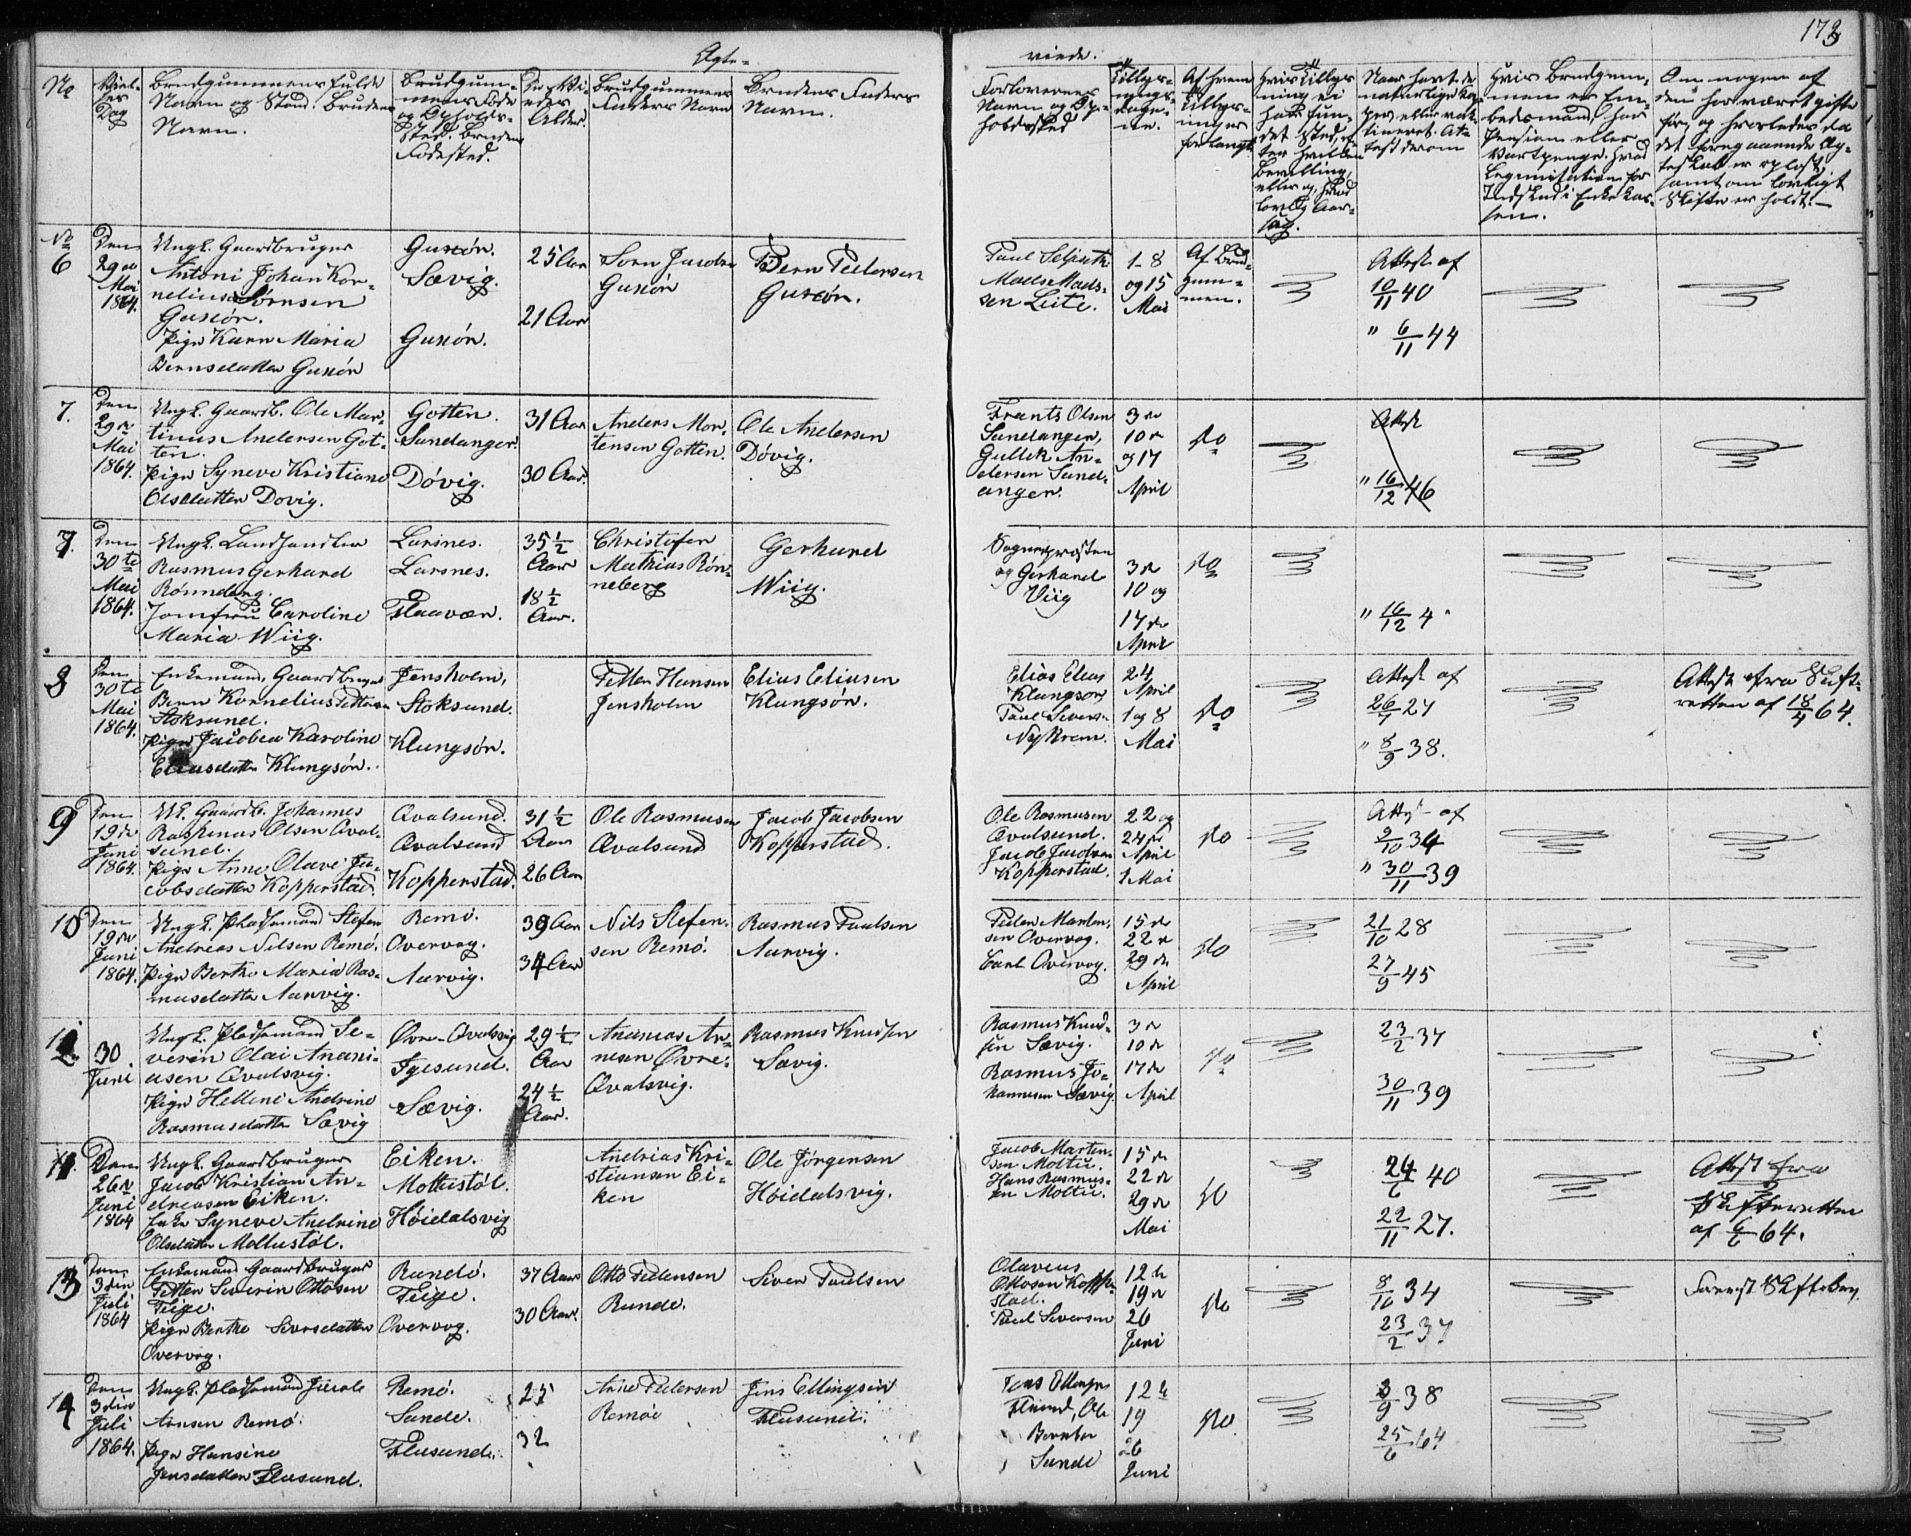 173
Ægte-
viede.
No
Vielses Dag
Brudgummens fulde
Navn og Stand. Brudens
Navn.
Brudgum-
mens Føde
og Opholds-
sted. Brudens
Fødested.
De Vi-
edes
Alder.
Brudgummens
Faders Navn
Brudens Faders
Navn.
Forlovernes
Navn og Op-
holdssted
Tillys-
nings-
dage-
ne.
Af hvem
Tillys-
ning er
forlangt
Hvis Tillys-
ning ei
har fun-
det Sted, ef-
ter hvilken
Bevilling,
eller og hvad
lovlig Aar-
sag.
Naar havt de
naturlige Kop-
per eller vac-
cineret. At-
test derom
Hvis Brudgum-
men er Em-
bedsmand, har
Pension eller
Vartpenge. Hvad
Legitimation for
Indskud i Enkekas-
sen.
Om nogen af
dem har været gifte
før, og hvorledes da
det foregaaende Æg-
teskab er opløst,
samt om lovligt
Skifte er holdt.
No
6
Den
29de
Mai
1864.
Ungk. Gaardbruger
Antoni Johan Kor-
nelius Sørnsen
Gusiøn.
Pige Karn Maria
Bernsdatter Gusiøn
Gusiøn.
Sævig.
Gusiøn.
25 Aar
21 Aar
Sørn Jacobsen
Gusiøn
Bern Pedersen
Gusiøn.
Paul
Mads Mads-
sen Leite.
1-8
og 15
Mai
Af Brud-
gum-
men.
Attest af
10/11 40
" 6/11 44
7.
Den
29de
Mai
1864.
Ungk. Gaardb. Ole Mar-
tinus Andersen Got-
ten.
Pige Syneve Kristiane
Olsdatter Dovig.
Gotten.
Sandanger.
Døvig.
31 Aar
30 Aar.
Anders Mor-
tensen Gotten.
Ole Andersen
Døvig.
Frants Olsen
Sandanger,
Gullik An-
dersen Sand-
anger.
3de
10de
og 17
April
do
Attest
" 16/12 46
7.
Den
30te
Mai
1864.
Ungk. Landhandler
Rasmus Gerhard
Rønneberg.
Jomfru Caroline
Maria Wiig.
Larsnes.
Larsnes.
Flaavær.
35 1/2
Aar
18 1/2
Aar.
Christofer
Mathias Røn-
neberg
Gerhard
Wiig.
Sogneprosten
og Gerhard
Viig
3de
10 og
17de
April
do
" 16/12 4
8
Den
30te
Mai
1864.
Enkemand, Gaardbruger
Bern Kornelius Pettersen
Stoksund.
Pige Jacobea Karoline
Eliasdatter Klungsøn.
Jensholm,
Stoksund.
Klungsøn.
Petter Hansen
Jensholm
Elias Eliasen
Klungsøn.
Elias Elias
Klungsøn
Paul Seversen
Nykrem.
24
April
1 og 8
Mai
do
Attest af
" 8/9 38.
Attest fra Skift-
retten af 18/4 64.
9
Den
19de
Juni
1864.
UK. Gaardb. Johannes
Raspinus Olsen Qval-
sund.
Pige Anne Olave Ja-
cobsdatter Kopperstad.
Qvalsund.
Qvalsund
Kopperstad.
31 1/2
Aar
26 Aar
Ole Rasmusen
Qvalsund
Jacob Jacobsen
Kopperstad.
Ole Rasmusen
Qvalsund.
Jacob Jacobsen
Kopperstad.
22 og
24de
April
1 Mai
do
Attest af
9/10 34
" 30/11 39
10
Den
19de
Juni
1864.
Ungk. Pladsmand Stefen
Andreas Nilsen Remø.
Pige Berthe Maria Ras-
musdatter Aarvig.
Remø.
Overvog.
Aarvig.
39 Aar
34 Aar
Nils Stefen-
sen Remø.
Rasmus Paulsen
Aarvig.
Peder Marten-
sen Overvog.
Carl Overvog.
15de
22de
29de
April
do
21/10 28
27/9 45
12
30
Juni
Ungk. Pladsmand Se-
verin Olai Anani-
asen Qvalsvig.
Pige Helline Andrine
Rasmusdatter Sævig
Øvre-Qvalsvig
Igesund.
Sævig.
29 1/2
Aar
24 1/2
Aar.
Ananias An-
nesen Øvre-
Qvalsvig.
Rasmus Knudsen
Sævig.
Rasmus Knud-
sen Sævig.
Rasmus Jo-
hannesen Sævig
3de
10de
17de
April
do
23/2 37
30/11 39
11
Den
26de
Juni
1864
Ungk. Gaardbruger
Jacob Kristian An-
dreasen Eiken.
Enke Syneve Andrine
Olsdatter Moltustøl.
Eiken.
Moltustøl.
Høidalsvig
Andrias Kri-
stiansen Ei-
ken
Ole Jørgensen
Høidalsvig.
Jacob Marten-
sen Moltu.
Hans Rasmus-
sen Moltu.
15de
22de
29de
Mai
do
24/6 40
22/11 27.
Attest fra
Skifteretten
af 6/6 64.
13
Den
3die
Juli
1864
Enkemand Gaardbruger
Petter Severin Ottosen
Teige.
Pige Berthe Siversdatter
Overvog.
Rundø.
Teige.
Overvog.
37 Aar
30 Aar.
Otto Pedersen
Runde.
Siver Paulsen
Olavus
Ottosen Koppe-
stad.
Paul Siversen
12te
19de
26
Juni
do
8/10 34
23/2 37
14
Den
3die
Juli
1864.
Ungk. Pladsmand Jacob
Arnsen Remø.
Pige Hansine
Jensdatter Flusund.
Remø.
Sande.
Flusund.
25
32
Arne Pedersen
Remøe
Jens Ellingsen
Flusund.
Jens Ellingsen
Flusund, Ole
Berntsen
Sande
12te
19
26
Juni
do.
3/9 38
25/6 64